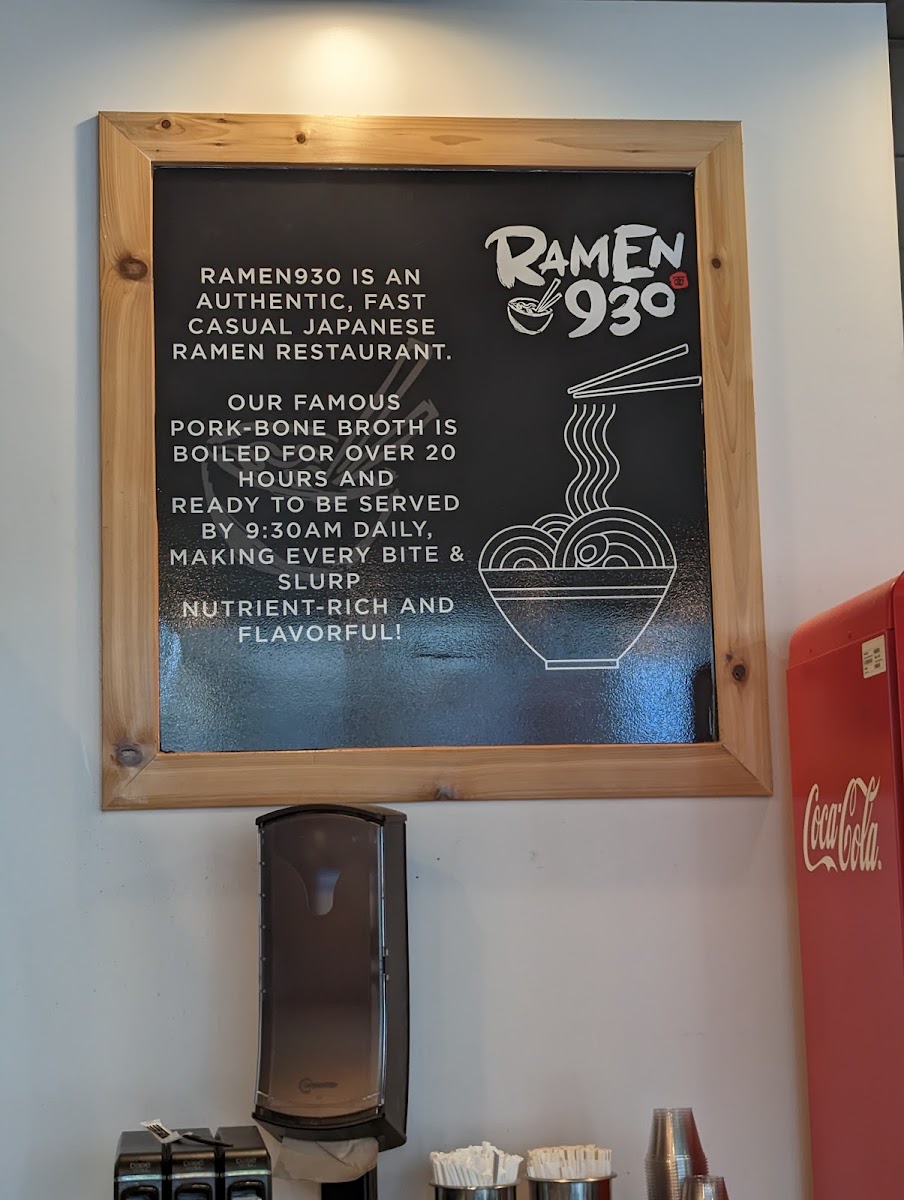 RAMEN930 IS AN
AUTHENTIC, FAST
CASUAL JAPANESE
RAMEN RESTAURANT.
OUR FAMOUS
PORK-BONE BROTH IS
BOILED FOR OVER 20
HOURS AND
READY TO BE SERVED
BY 9:30AM DAILY,
MAKING EVERY BITE &
SLURP
NUTRIENT-RICH AND
FLAVORFUL!
RAMEN
930
Coca-Cola